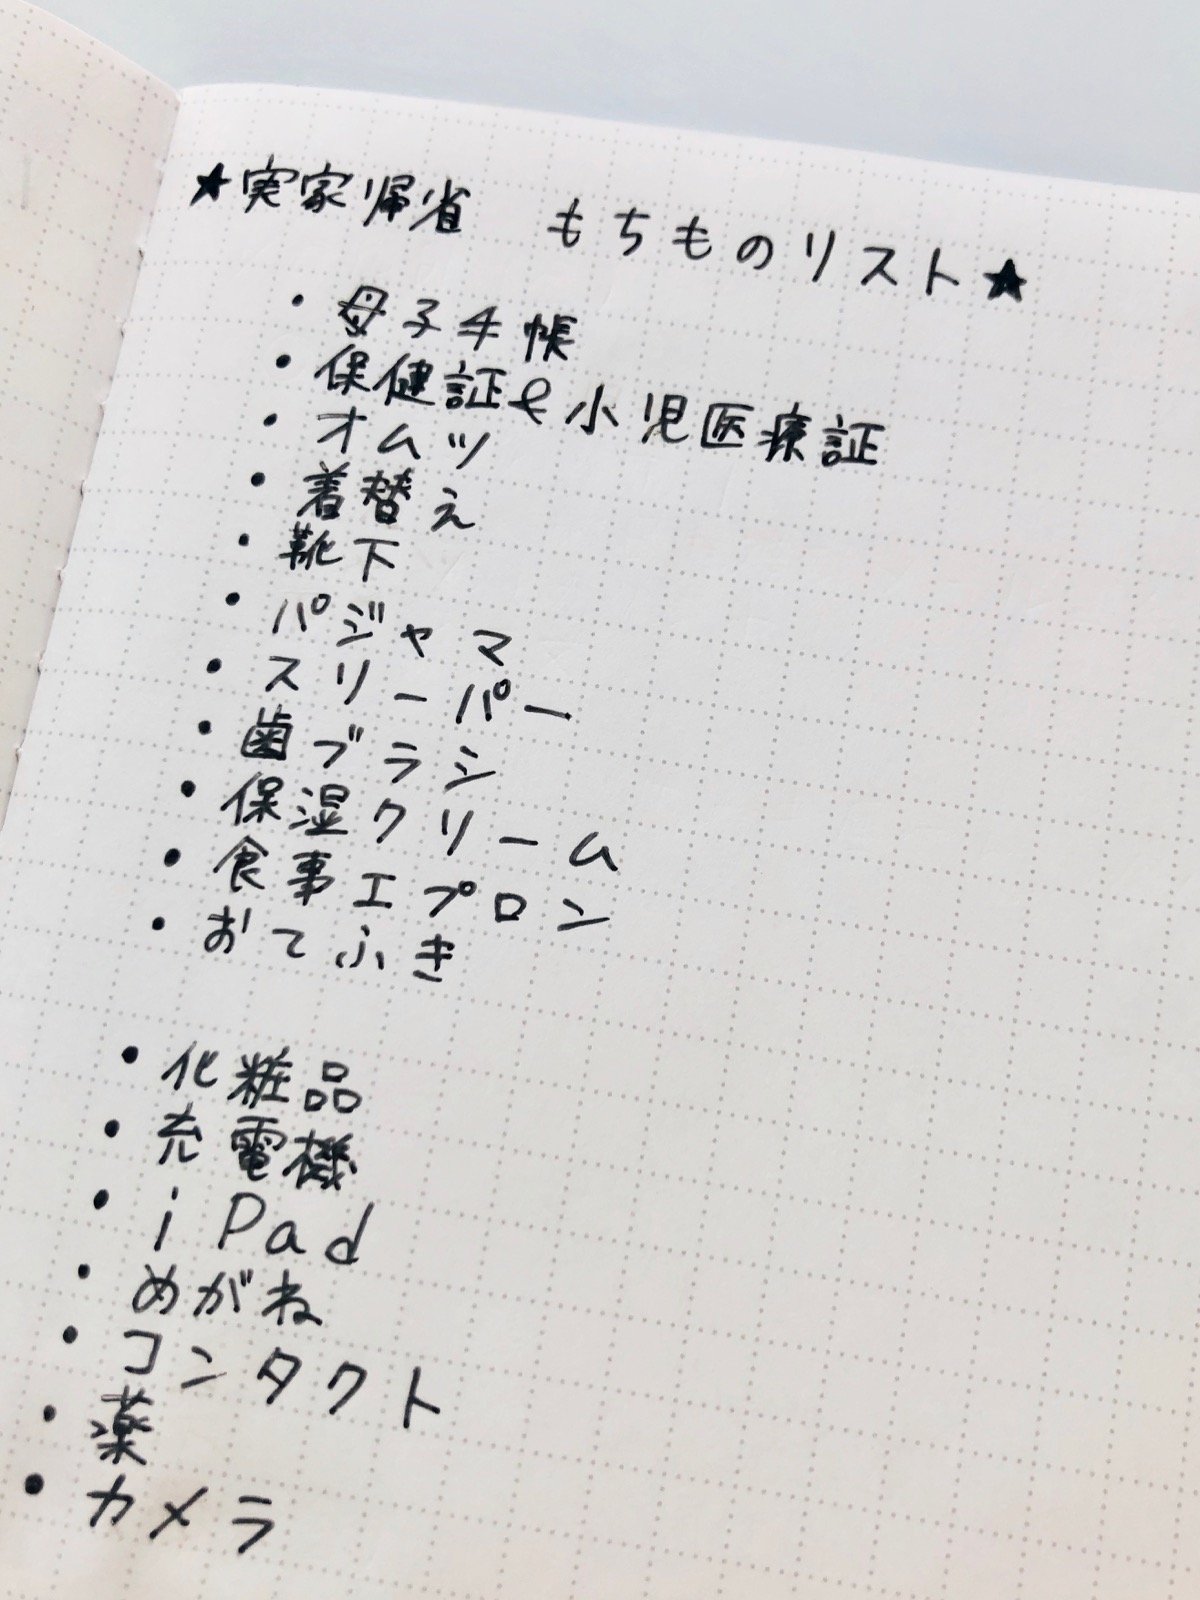 ★実家帰省　もちものリスト★
・母子手帳
・保健証&小児医療証
・オムツ
・着替え
・靴下
・パジャマ
・スリーパー
・歯ブラシ
・保湿クリーム
・食事エプロン
・おてふき
・化粧品
・充電機
・iPad
・めがね
・コンタクト
・薬
・カメラ